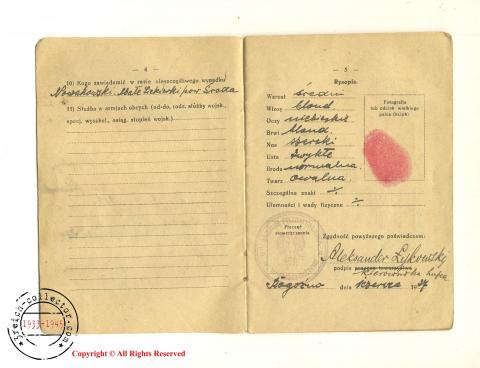 — 4 —
10) Kogo zawiadomić w razie nieszczęśliwego wypadku
Nowakowski. Małe Jeziory pow. Środa
11) Służba w armjach obcych (od-do, rodz. służby wojsk.,
specj. wyszkol., osiąg. stopień wojsk.)
— 5 —
Rysopis.
Wzrost średni
Włosy blond
Oczy niebieskie
Brwi blond
Nos szeroki
Usta zwykłe
Broda normalna
Twarz owalna.
Szczególne znaki ÷
Ułomności i wady fizyczne ÷
Fotografja
lub odcisk wielkiego
palca (kciuk)
Pieczęć
stowarzyszenia
Zgodność powyższego poświadczam:
Aleksander
podpis
dnia 19
3reich-collector.com
1933-1945
Copyright © All Rights Reserved